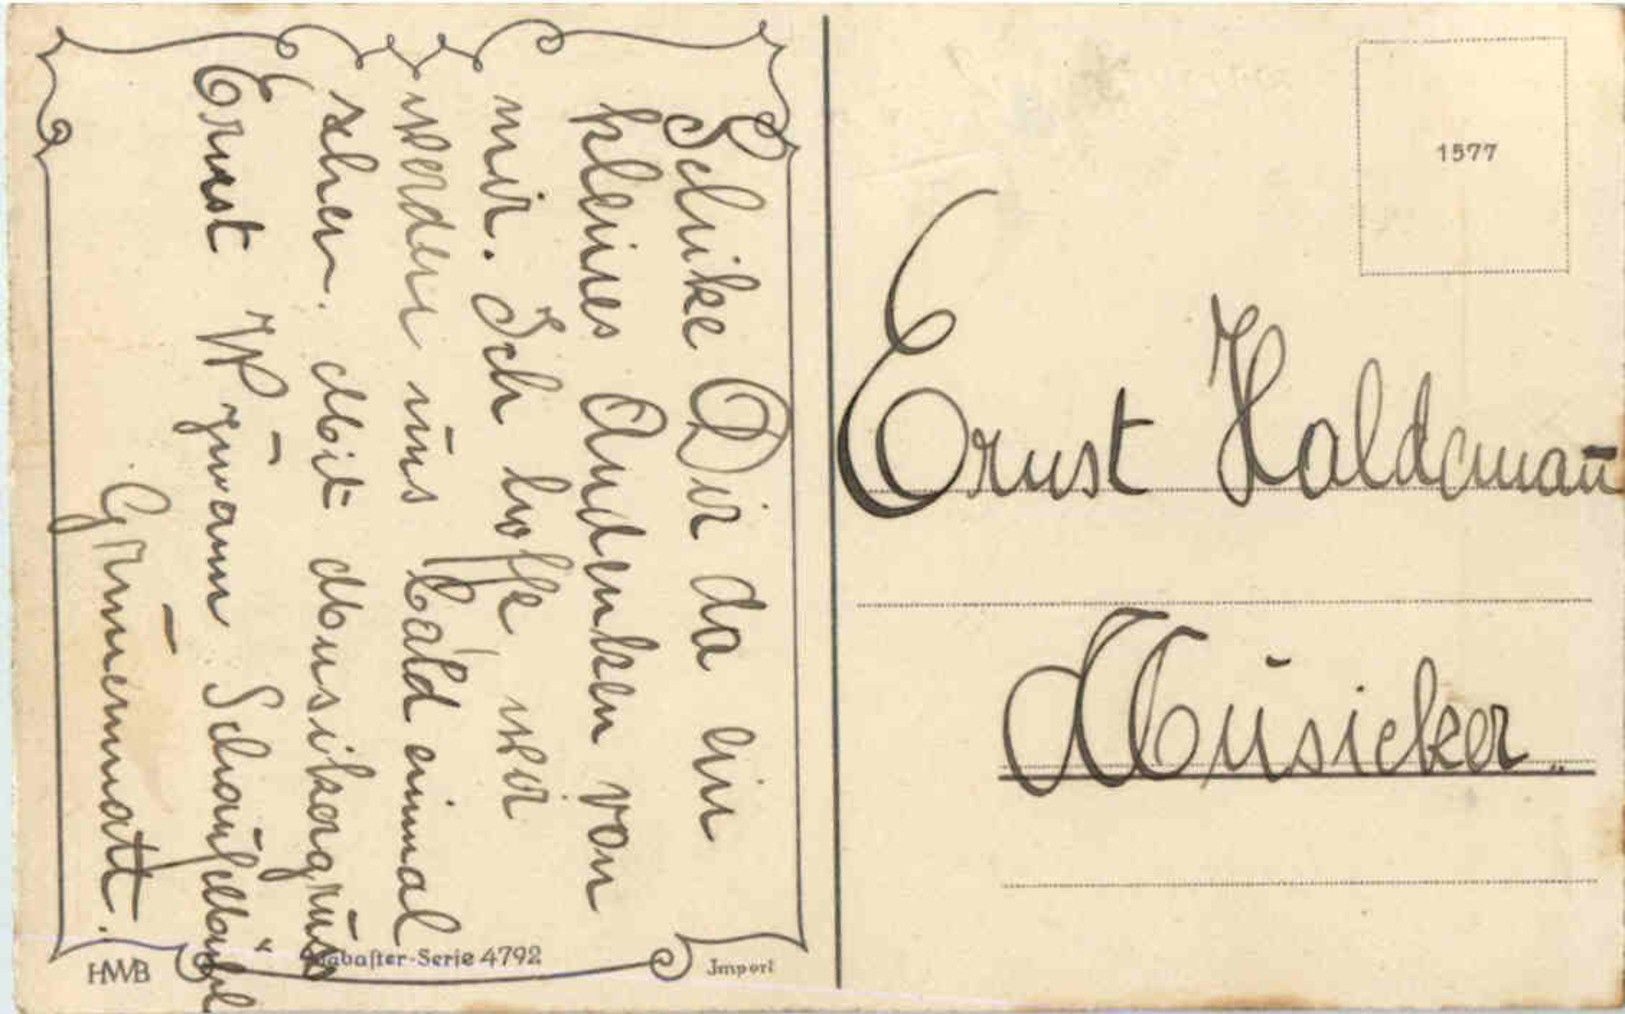 Schike Dir da ein
kleines Andenken von
mir. Ich hoffe, wir
werden uns bald einmal
sehen. Mit Musikergruss
Ernst
Grünenmatt.
HWB
Alabaster-Serie 4792
Import
1577
Ernst Haldeman̄
Musicker